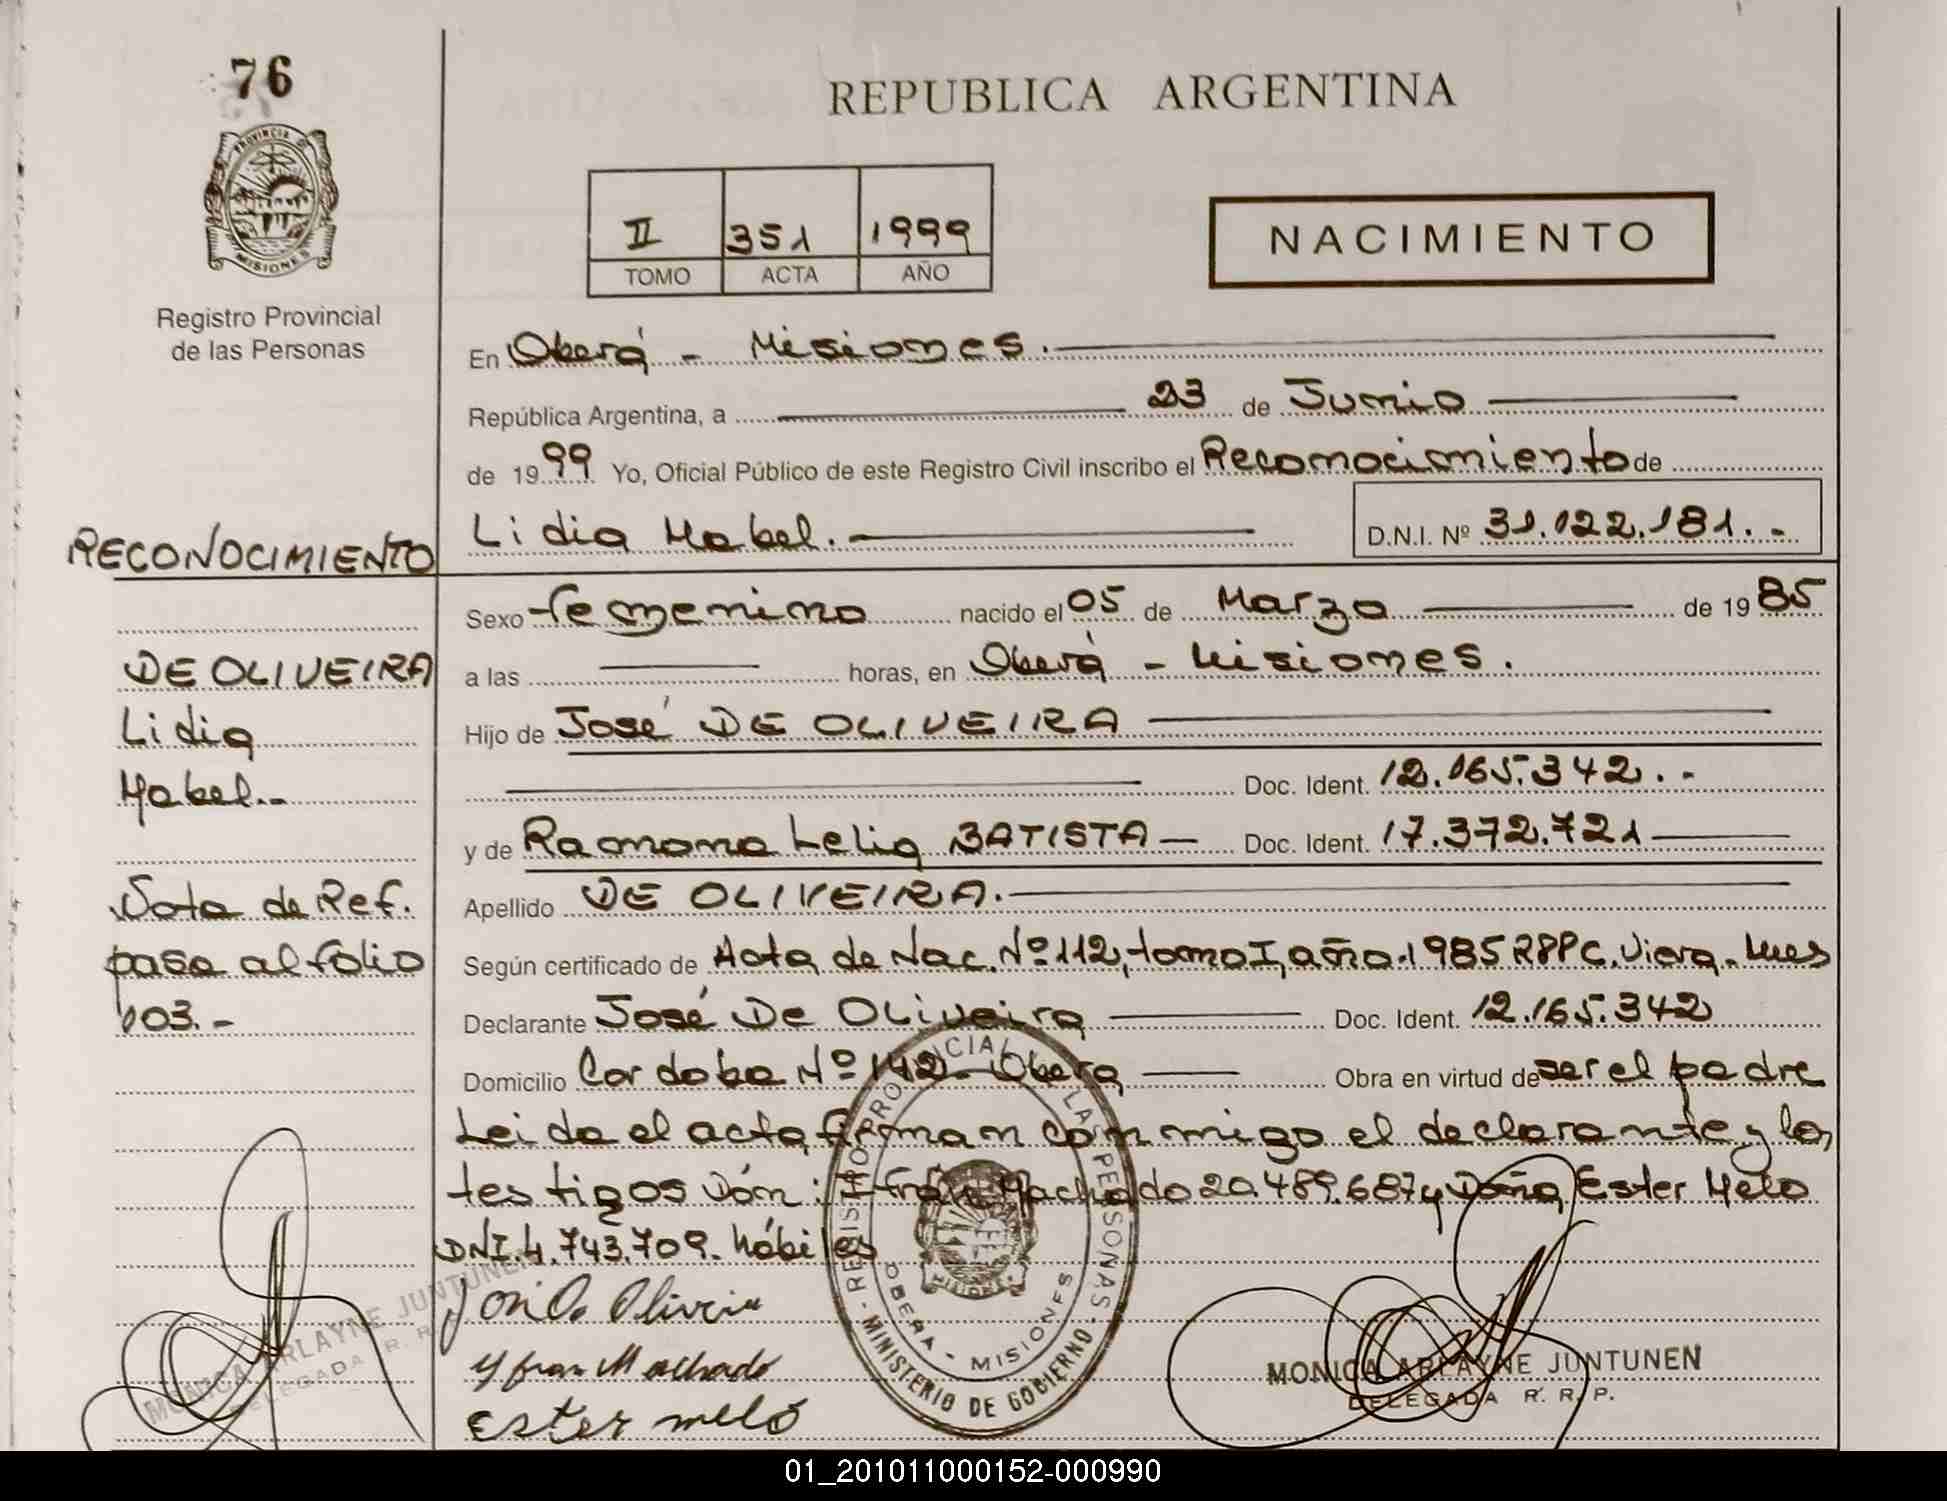 76
PROVINCIA DE
MISIONES
Registro Provincial
de las Personas
RECONOCIMIENTO
DE OLIVEIRA
Lidia
Mabel.-
Nota de Ref.
pasa al folio
103.-
MONICA ARLAYNE JUNTUNEN
DELEGADA R. R. P.
REPUBLICA ARGENTINA
II 351 1999
TOMO ACTA AÑO
NACIMIENTO
En Oberá - Misiones.
República Argentina, a 23 de Junio
de 1999 Yo, Oficial Público de este Registro Civil inscribo el Reconocimiento de
Lidia Mabel. D.N.I. Nº 31.122.181.-
Sexo femenino nacido el 05 de Marzo de 1985
a las horas, en Oberá - Misiones.
Hijo de José DE OLIVEIRA
Doc. Ident. 12.165.342.-
y de Ramona Lelia BATISTA Doc. Ident. 17.372.721
Apellido DE OLIVEIRA.
Según certificado de Acta de Nac. Nº 112, tomo I, año 1985 RPPC. Viera. Mnes
Declarante José De Oliveira Doc. Ident. 12.165.342
Domicilio Cordoba Nº 142 - Oberá Obra en virtud de ser el padre
Leida el acta firman conmigo el declarante y los
testigos Dón: Ifrán Machado 20.489.687 y Doña Ester Melo
DNI. 4.743.709. hábiles
José De Oliveira
Yfran Machado
Ester meló
REGISTRO PROVINCIAL DE LAS PERSONAS
OBERA - MISIONES
MISIONES
- MINISTERIO DE GOBIERNO -
MONICA ARLAYNE JUNTUNEN
DELEGADA R. R. P.
01_201011000152-000990